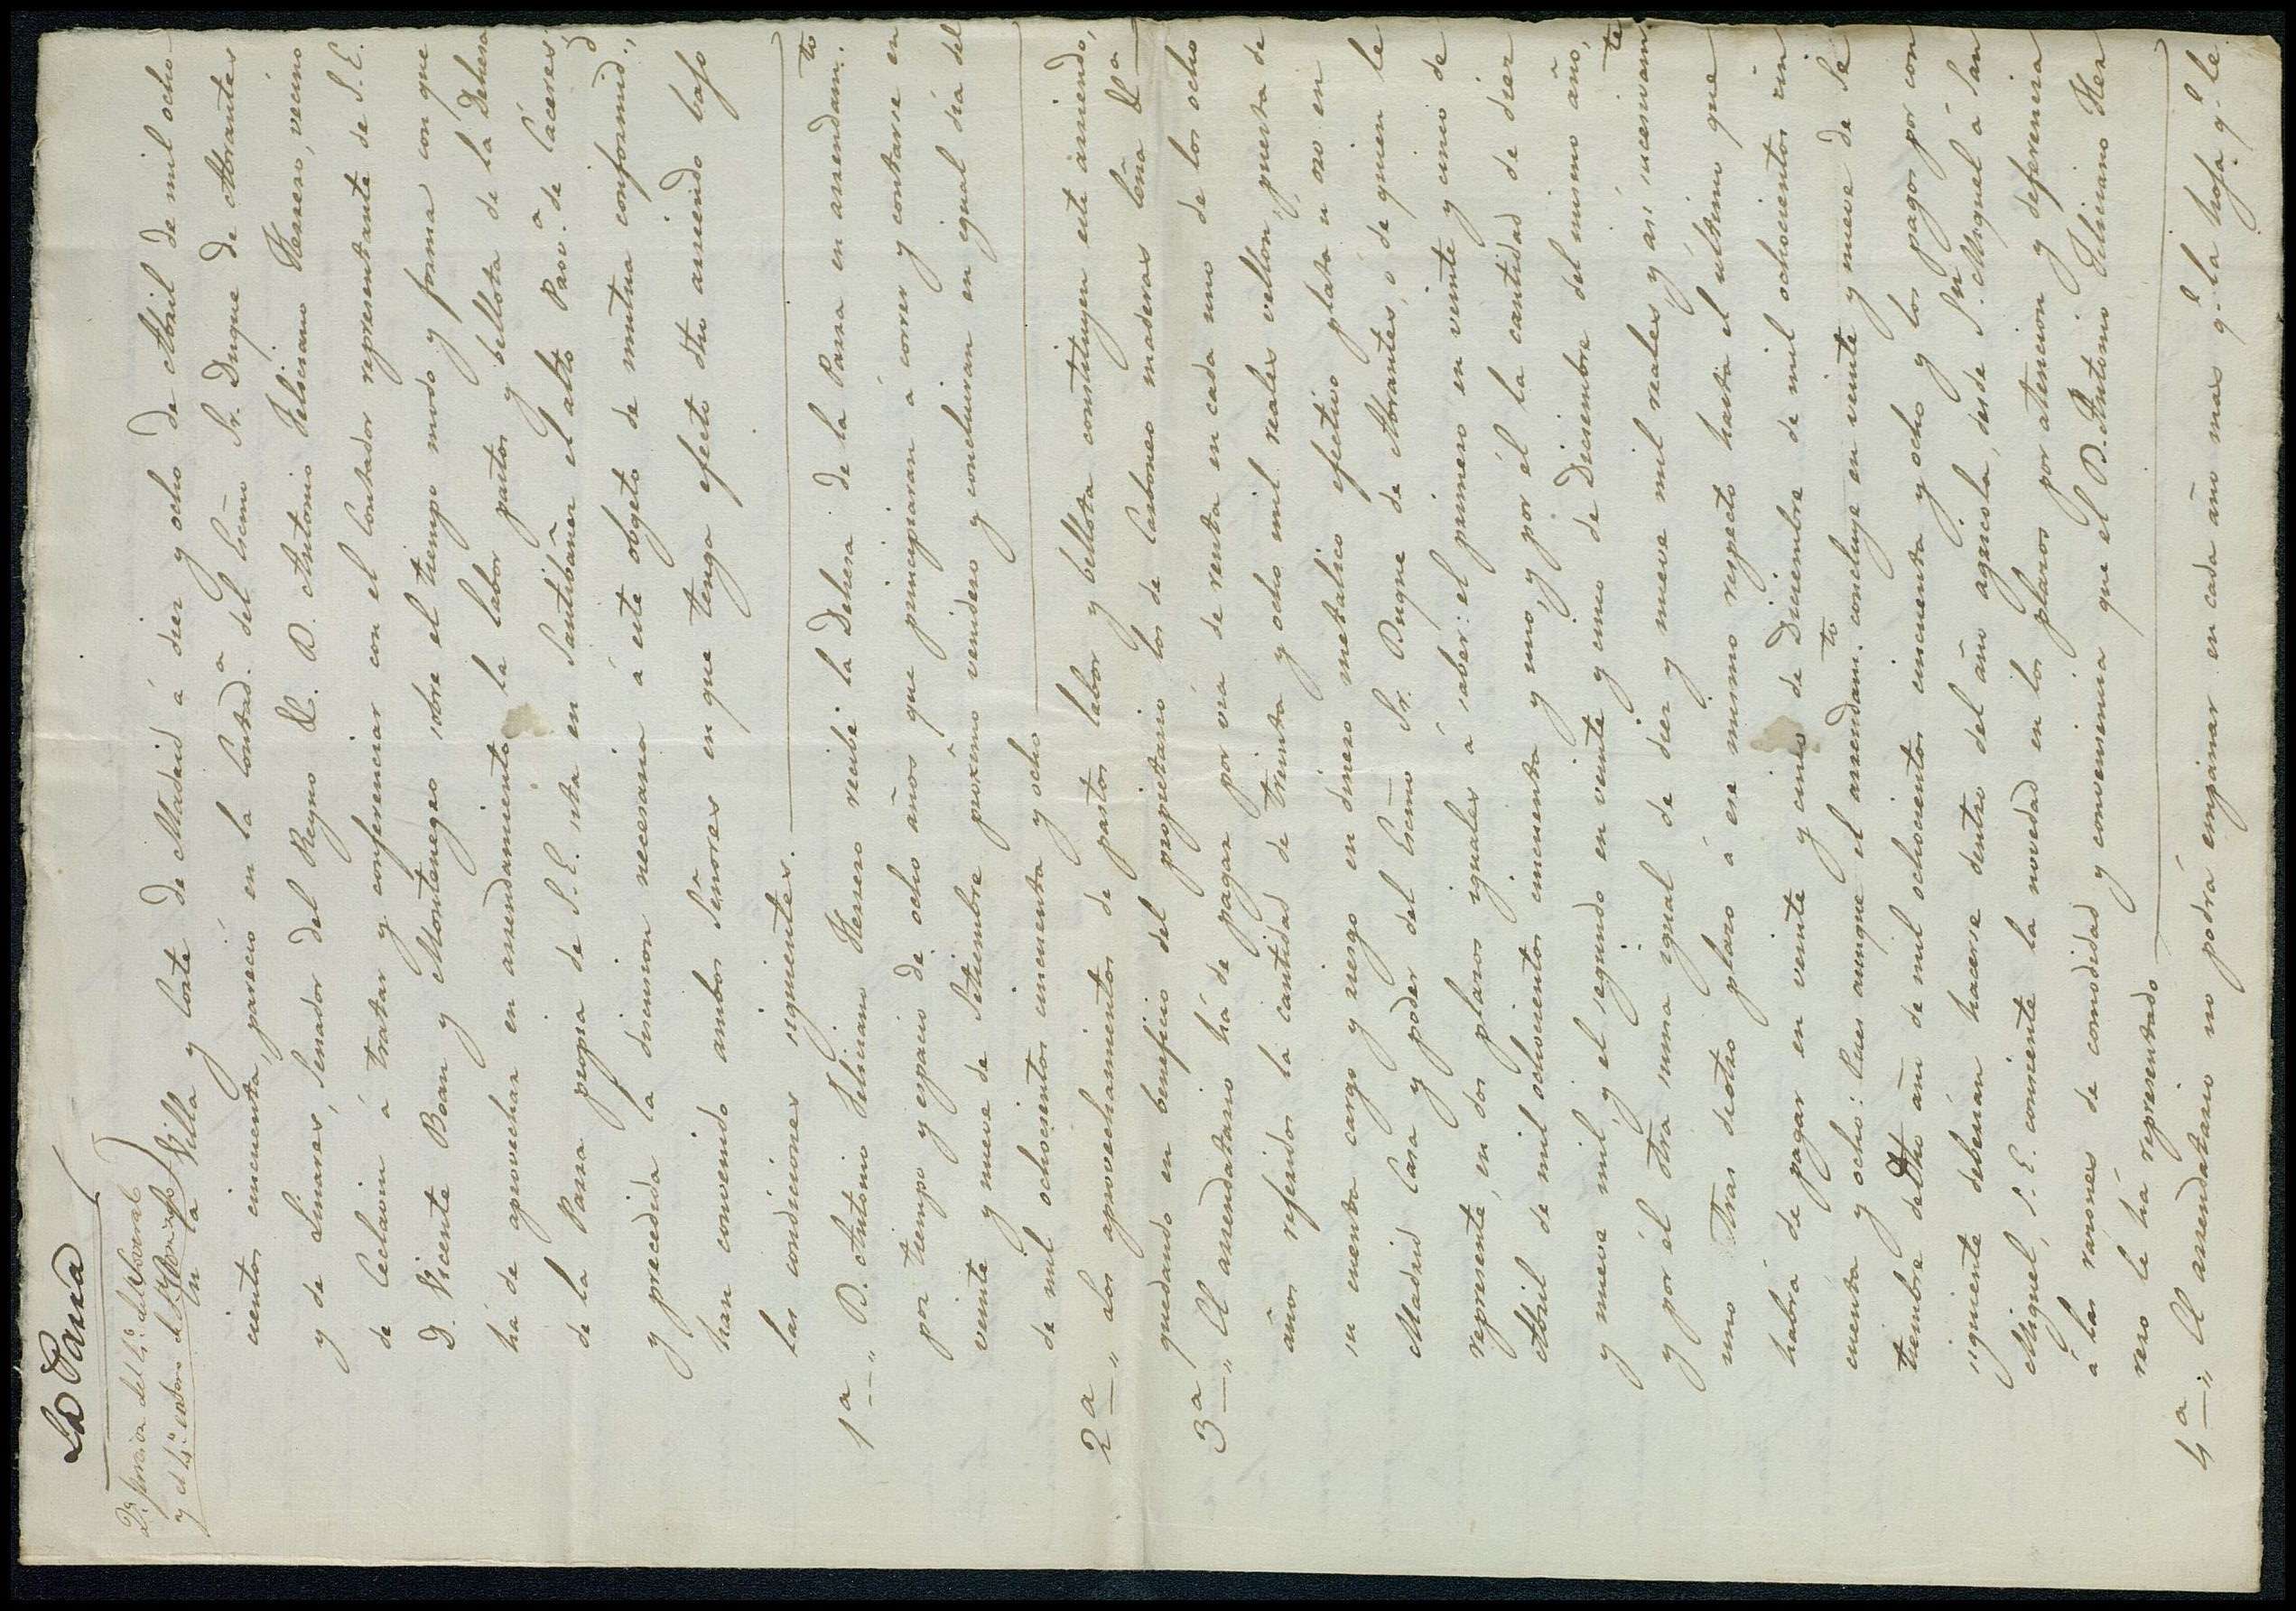 La Parra
y el
En la Villa y Corte de Madrid á diez y ocho de Abril de mil ocho
cientos cincuenta, pareció en la Contad.ª del Excm̃o Sr. Duque de Abrantes
y de Linares, Senador del Reyno &. D. Antonio Feliciano Herrero, vecino
de Ceclavin á tratar y conferenciar con el Contador representante de S. E.
D. Vicente Boan y Montenegro sobre el tiempo modo y forma con que
há de aprovechar en arrendamiento la labor pastos y bellota de la Dehesa
de la Parra propia de S. E. sita en Santibañez el alto Prov.ª de Caceres
y precedida la discusion necesaria á este obgeto de mutua conformid.d,
han convenido ambos Señores en que tenga efecto dho arriendo bajo
las condiciones siguientes.
1ª „ D. Antonio Feliciano Herrero recibe la Dehesa de la Parra en arrendam.to
por tiempo y espacio de ocho años que principiaran á correr y contarse en
veinte y nueve de Setiembre proximo venidero y concluiran en igual dia del
de mil ochocientos cincuenta y ocho
2ª „ Los aprovechamientos de pastos labor y bellota constituyen este arriendo,
quedando en beneficio del propietario los de Carboneo maderas leña &ª
3ª „ El arrendatario há de pagar por via de renta en cada uno de los ocho
años referidos la cantidad de treinta y ocho mil reales vellon, puesta de
su cuenta cargo y riesgo en dinero metalico efectivo plata u oro en
Madrid Casa y poder del Excm̃o Sr. Duque de Abrantes, ó de quien le
represente, en dos plazos iguales á saber: el primero en veinte y cinco de
Abril de mil ochocientos cincuenta y uno, y por él la cantidad de diez
y nueve mil, y el segundo en veinte y cinco de Diciembre del mismo año,
y por él otra suma igual de diez y nueve mil reales, y asi sucesivam.te
uno tras deotro plazo á ese mismo respecto hasta el ultimo que
habrá de pagar en veinte y cinco de Diciembre de mil ochocientos cin
cuenta y ocho: Pues aunque el arrendam.to concluye en veinte y nueve de Se
tiembre de dho año de mil ochocientos cincuenta y ocho y los pagos por con
siguiente deberian hacerse dentro del año agricola, desde S.n Miguel á San
Miguel, S. E. consiente la novedad en los plazos por atencion y deferencia
á las razones de comodidad y conveniencia que el D. Antonio Feliciano Her
rero le há representado
4ª „ El arrendatario no podrá empinar en cada año mas q.e la hoja q.e le